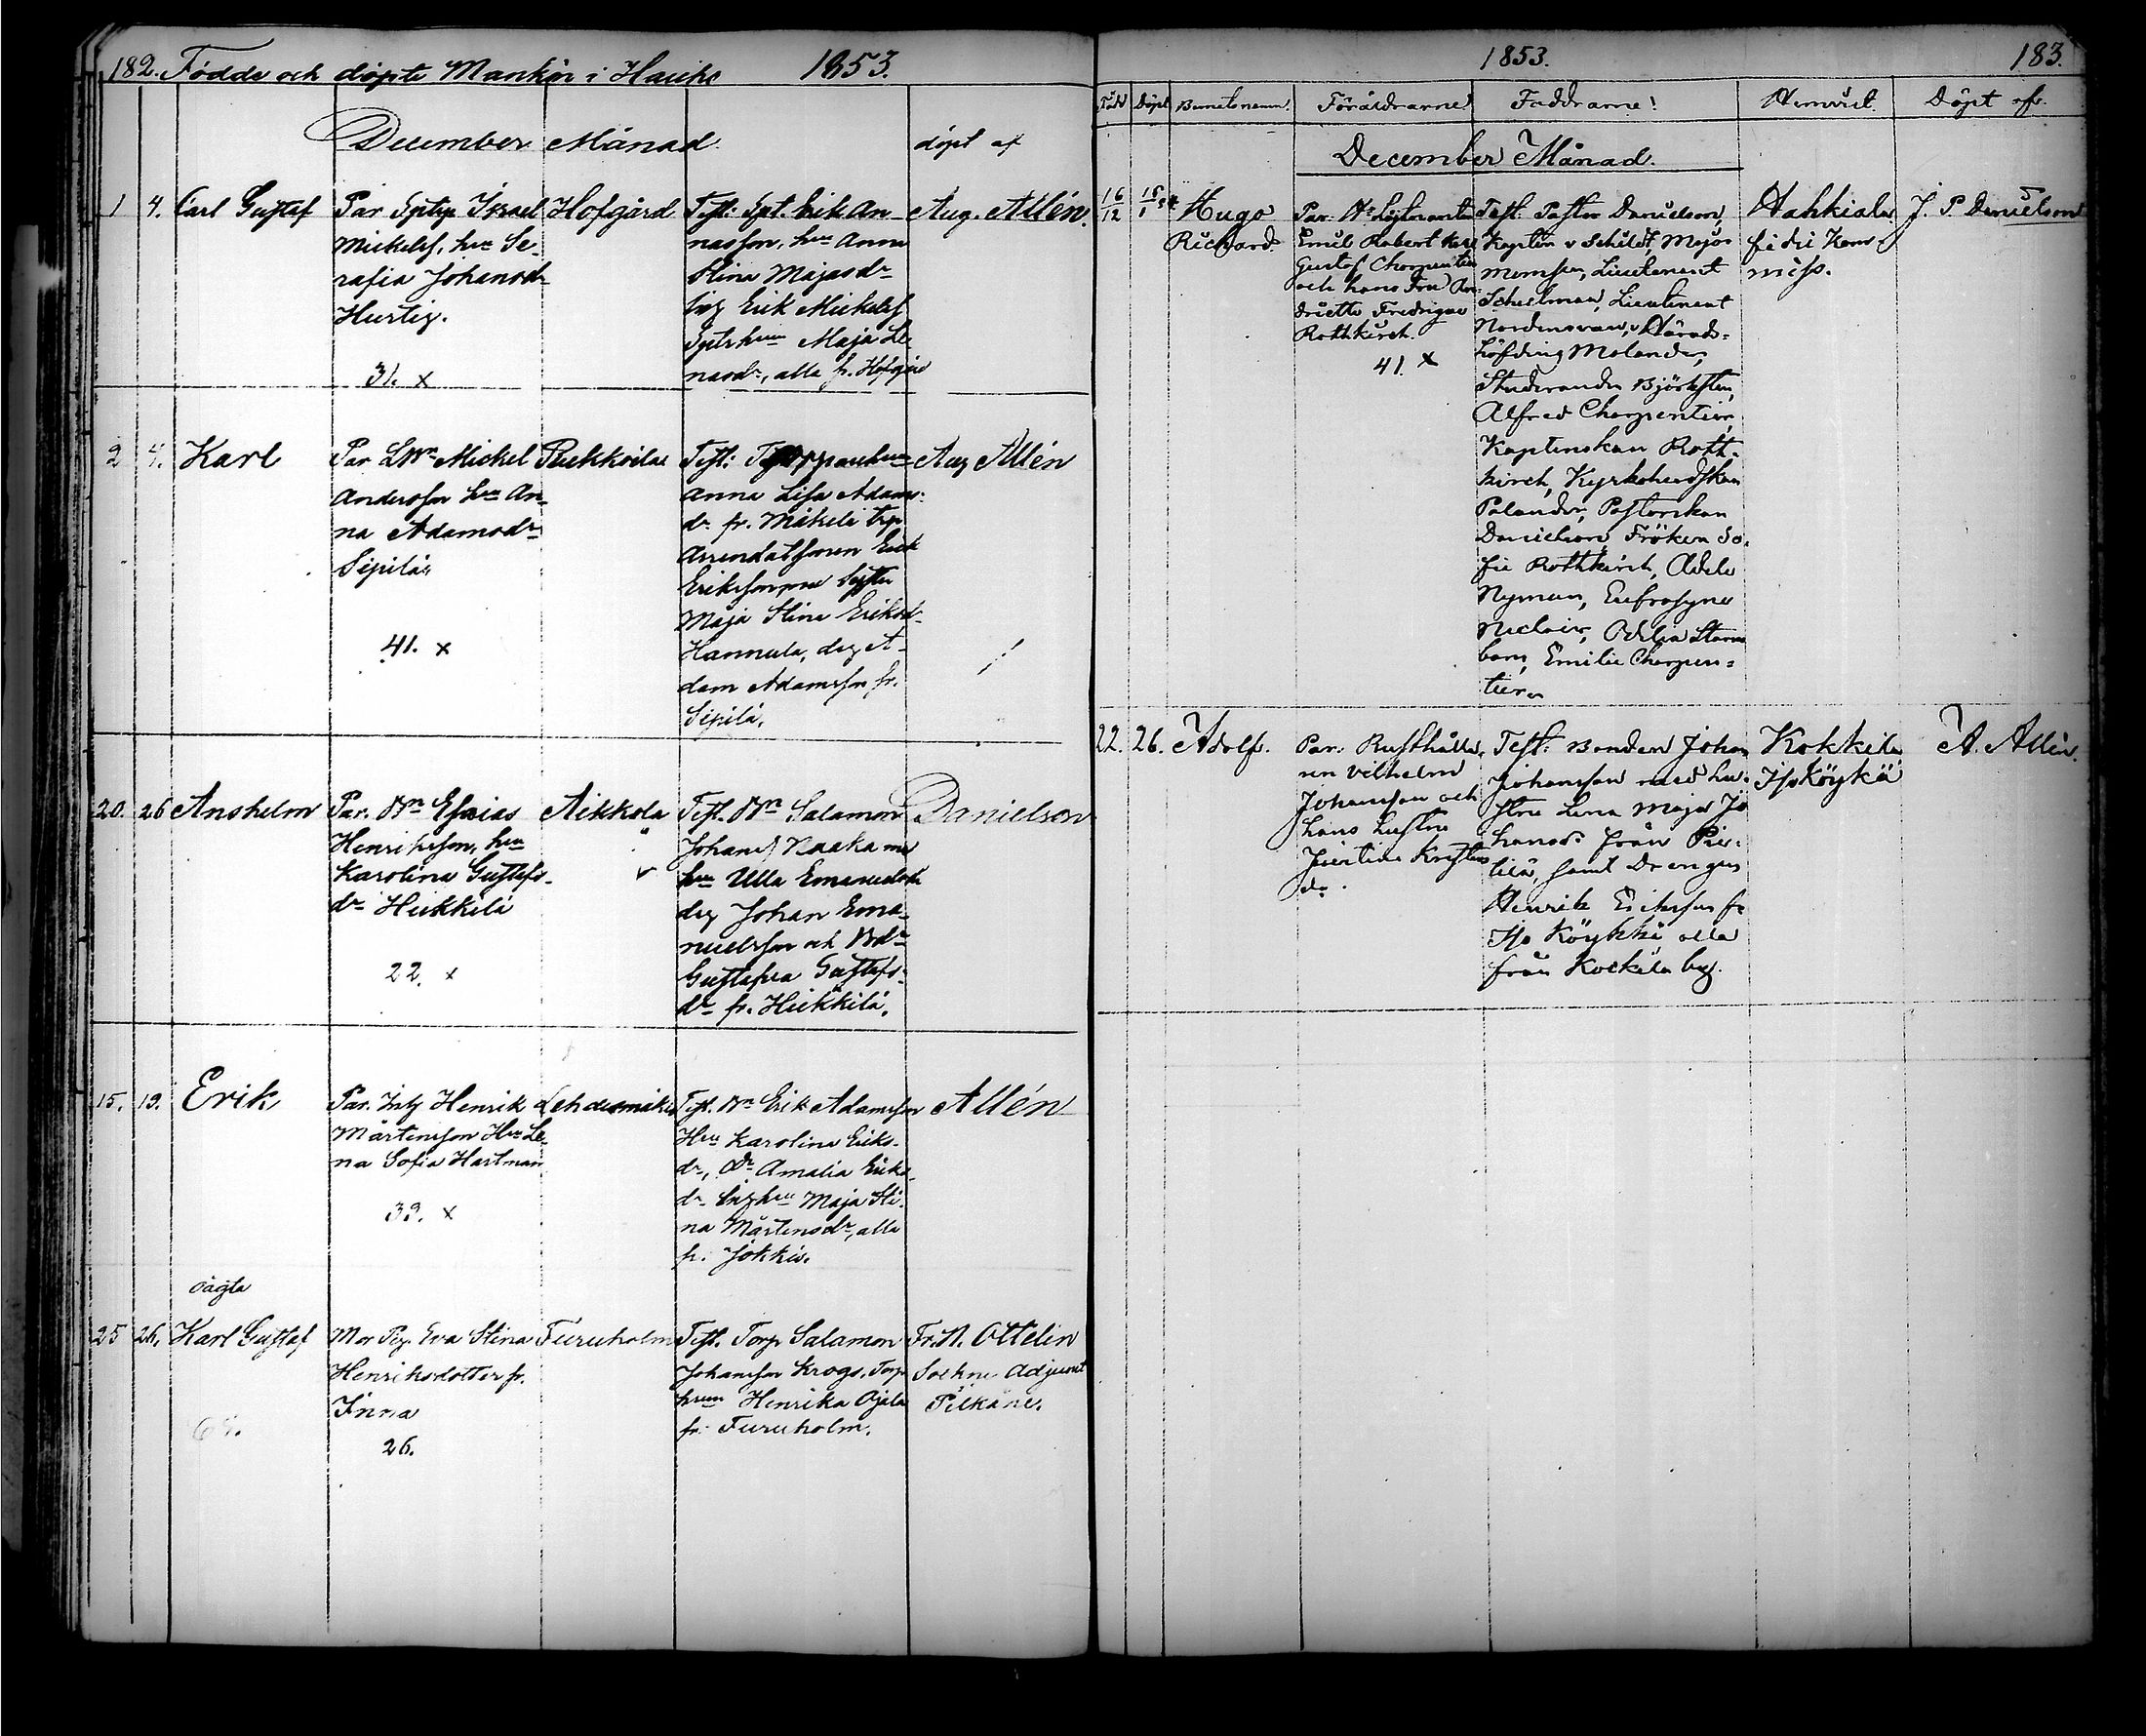 182. Födde och döpte Mankön i Hauho 1853.
December Månad. döpt af
1 4. Carl Gustaf
Par Sptrp Israel
Mickelsf, hru Se-
rafia Johansdr
Hurtig.
31. x
Hofgård
Test: Spt. Erik An-
nasson, hru Anna
Stina Majasdr
Erik Mickelsf
Maja Le-
nasdr, alla fr. Hofgård
Aug. Allén.
2 4. Karl
Par Mickel
Andersson hru An-
na Adamsdr
Sipilä.
41. x
Test:
Anna Lisa Adams-
dr. fr. Mäkelä
Arrendatssonen Erik
Eriksson
Maja Stina Eriksdr
Hannula, drg A-
dam Adamsson fr.
Sipilä.
Aug Allén
20. 26 Anshelm
Par. Bn Esaias
Henriksson, hru
Karolina Gustafs-
dr Heikkilä
22. x
Aikkola
Test. Bn Salamon
Johansf Kaaka med
hru Ulla Emanuelsdr
drg Johan Ema-
nuelsson och Bdr
Gustafva Gustafs-
dr fr. Heikkilä.
Danielson
15. 19. Erik
Par. Inh Henrik
Mårtensson Hru Le-
na Sofia Hartman
39. x
Lehdesmäki
Test. Bn Erik Adamsson
Hru Karolina Eriks-
dr, Amalia Eriks-
dr Maja Sti-
na Mårtensdr, alla
fr. Jokkis.
Allén
oägta
25 26. Karl Gustaf
Mor Pig. Eva Stina
Henriksdotter fr.
Inna
26.
Furuholm
Test. Torp Salamon
Johansson Krogs, Torp
hrun Henrika Ojala
fr. Furuholm.
Fr. N. Ottelin
Sockne Adjunct
Pelkäne.
1853. 183.
Född Döpt Barnets namn. Föräldrarne! Faddrarne! Hemvist. Döpt af.
December Månad.
16/12 15/1 54 Hugo
Richard
Par. Hr Löjtnanten
Emil Robert Karl
Gustaf Charpentier
och hans Fru
Fredrique
Rothkirch.
41. x
Test: Pastor Danielson,
Kapten v Schildt, Major
Lieutenant
Schulman, Lieutenant
Nordensvan, v Härads-
höfding Molander,
Studerande Björksten,
Alfred Charpentier,
Kaptenskan Roth-
kirch, Kyrkoherdskan
Palander, Pastorskan
Danielson, Fröken So-
fie Rothkirch, Adele
Nyman, Eufrosyne
Odelia Storm-
bom, Emilie Charpen-
tier.
Hahkiala
J. P Danielson
22. 26. Adolf.
Par: Rusthålla-
ren Vilhelm
Johansson och
hans hustru
do.
Test: Bonden Johan
Johansson med hu-
stru Lena Maja Jo-
hansdr från
samt Drengen
Henrik Ericksson fr
Iso Köykkä alla
från Kockila by.
Kokkila
Iso Köykkä
A. Allén.